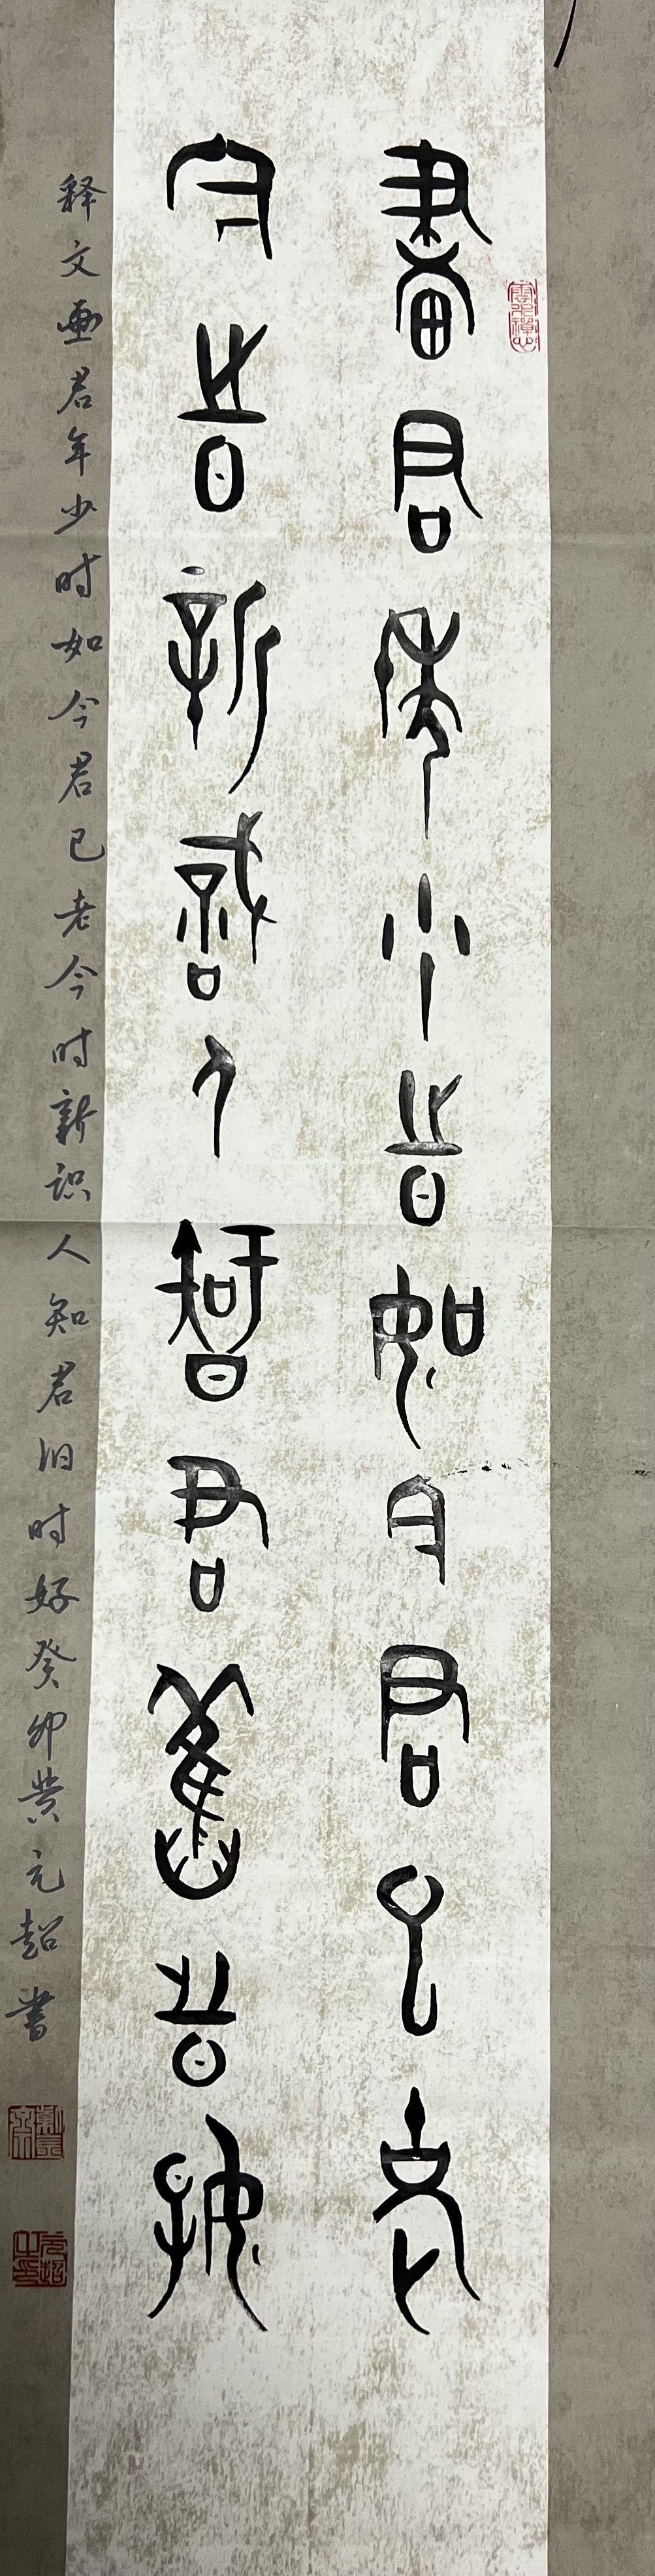 畫君年少時如今君已老
今時新識人知君舊時好
释文画君年少时如今君已老今时新识人知君旧时好癸卯黄元超书